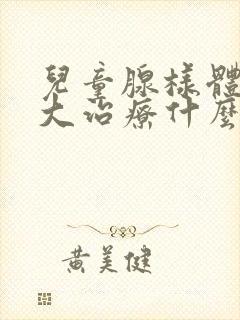 兒童腺樣體
大治療什麼
黃美健